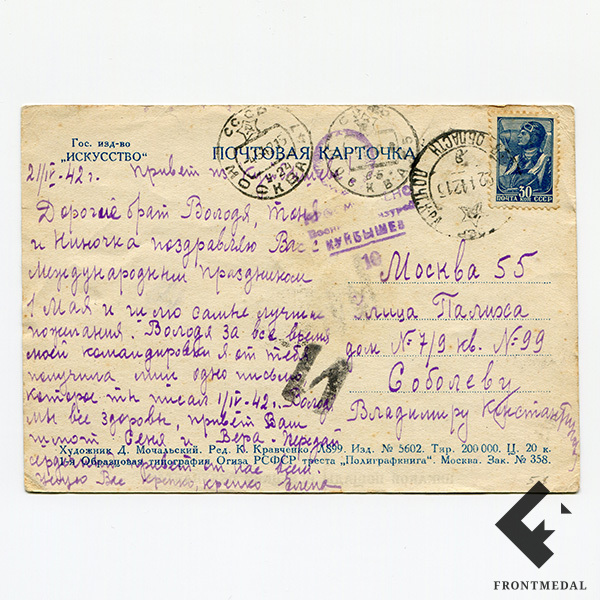 Гос. изд-во
"ИСКУССТВО"
ПОЧТОВАЯ КАРТОЧКА
21/IV-42 г. Привет
Дорогие брат Володя, Тоня
и Ниночка поздравляю Вас с
международным праздником
1 Мая и шлю самые лучшие
пожелания. Володя за все время
моей командировки я от тебя
получила лишь одно письмо
которое ты писал 1/IV-42 г.
мы все здоровы, привет Вам
шлют Сеня и Вера. Передай
сердечный привет от нас всем.
Целую Вас крепко, крепко Елена
МОСКВА
КУЙБЫШЕВ
10
30
ПОЧТА СССР
Москва 55
улица Палиха
дом № 7/9 кв. № 99
Соболеву
Владимиру Константиновичу
Художник Д. Мочальский. Ред. К. Кравченко. Л899. Изд. № 5602. Тир. 200 000. Ц. 20 к.
1-я Образцовая типография Огиза РСФСР треста „Полиграфкнига". Москва. Зак. № 358.
FRONTMEDAL